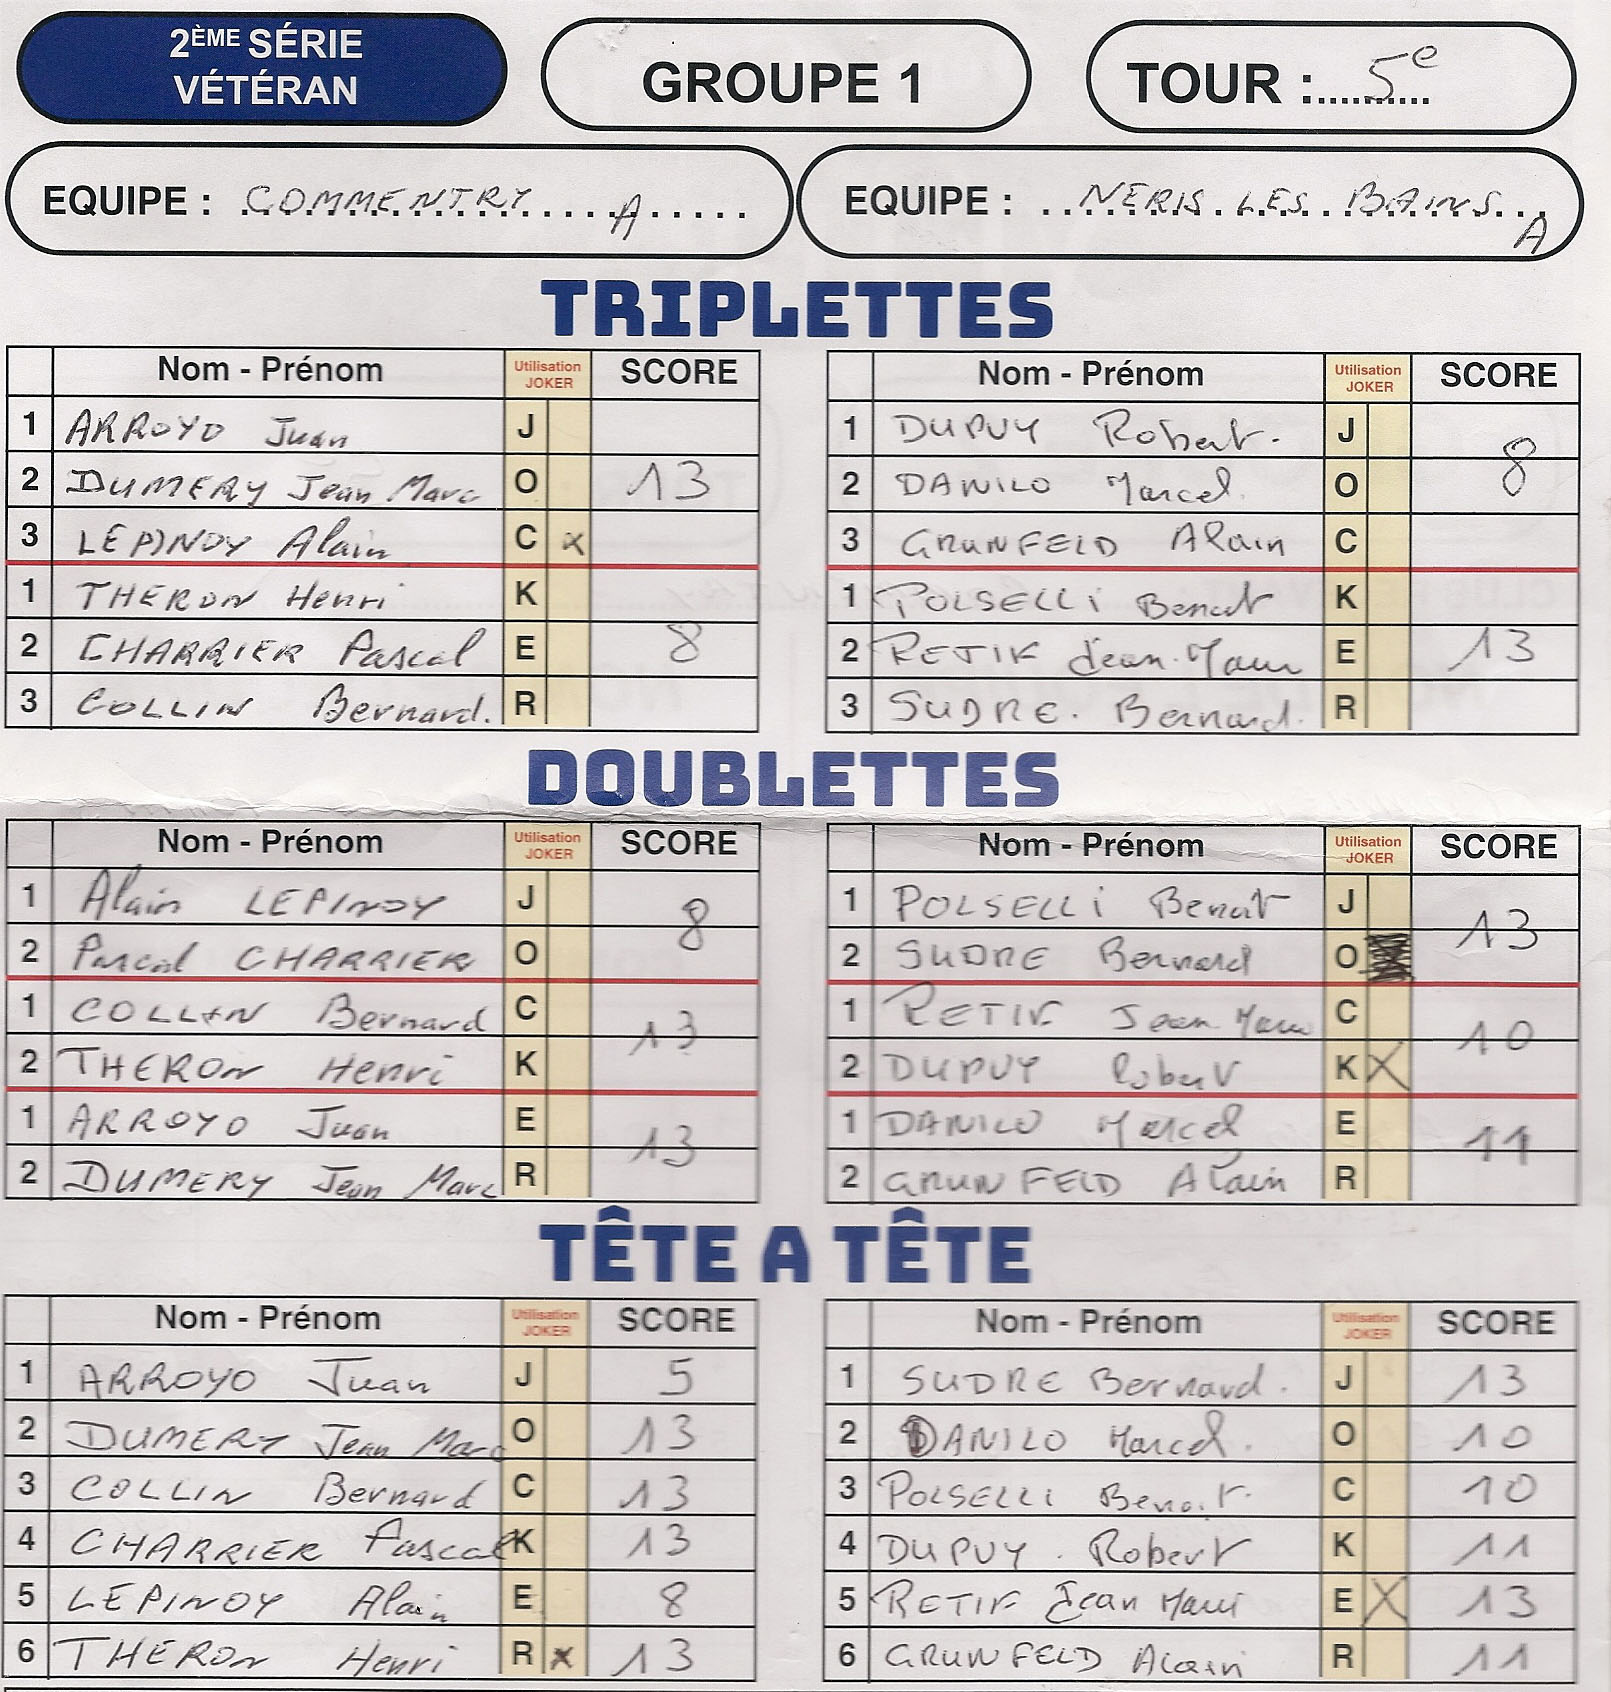 2ÈME SÉRIE
VÉTÉRAN
GROUPE 1
TOUR : 5e
EQUIPE : COMMENTRY A
EQUIPE : NERIS LES BAINS A
TRIPLETTES
Nom - Prénom Utilisation JOKER SCORE
1 ARROYO Juan J
2 DUMERY Jean Marc O 13
3 LEPINOY Alain C x
1 THERON Henri K
2 CHARRIER Pascal E 8
3 COLLIN Bernard. R
1 Nom - Prénom Utilisation JOKER SCORE
1 DUPUY Robert. J
2 DANILO Marcel. O 8
3 GRUNFELD Alain C
1 POLSELLI Benoit K
2 RETIF Jean-Marie E 13
3 SUDRE. Bernard. R
DOUBLETTES
Nom - Prénom Utilisation JOKER SCORE
1 Alain LEPINOY J
2 Pascal CHARRIER O 8
1 COLLIN Bernard C
2 THERON Henri K 13
1 ARROYO Juan E
2 DUMERY Jean Marc R 13
Nom - Prénom Utilisation JOKER SCORE
1 POLSELLI Benoit J
2 SUDRE Bernard O 13
1 RETIF Jean Marie C
2 DUPUY Robert K X 10
1 DANILO Marcel E
2 GRUNFELD Alain R 11
TÊTE A TÊTE
Nom - Prénom Utilisation JOKER SCORE
1 ARROYO Juan J 5
2 DUMERY Jean Marc O 13
3 COLLIN Bernard C 13
4 CHARRIER Pascal K 13
5 LEPINOY Alain E 8
6 THERON Henri R x 13
Nom - Prénom Utilisation JOKER SCORE
1 SUDRE Bernard. J 13
2 DANILO Marcel. O 10
3 POLSELLI Benoit. C 10
4 DUPUY. Robert K 11
5 RETIF Jean Marie E X 13
6 GRUNFELD Alain R 11